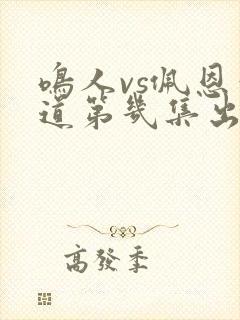 鳴人vs佩恩
道第幾集出
高發季